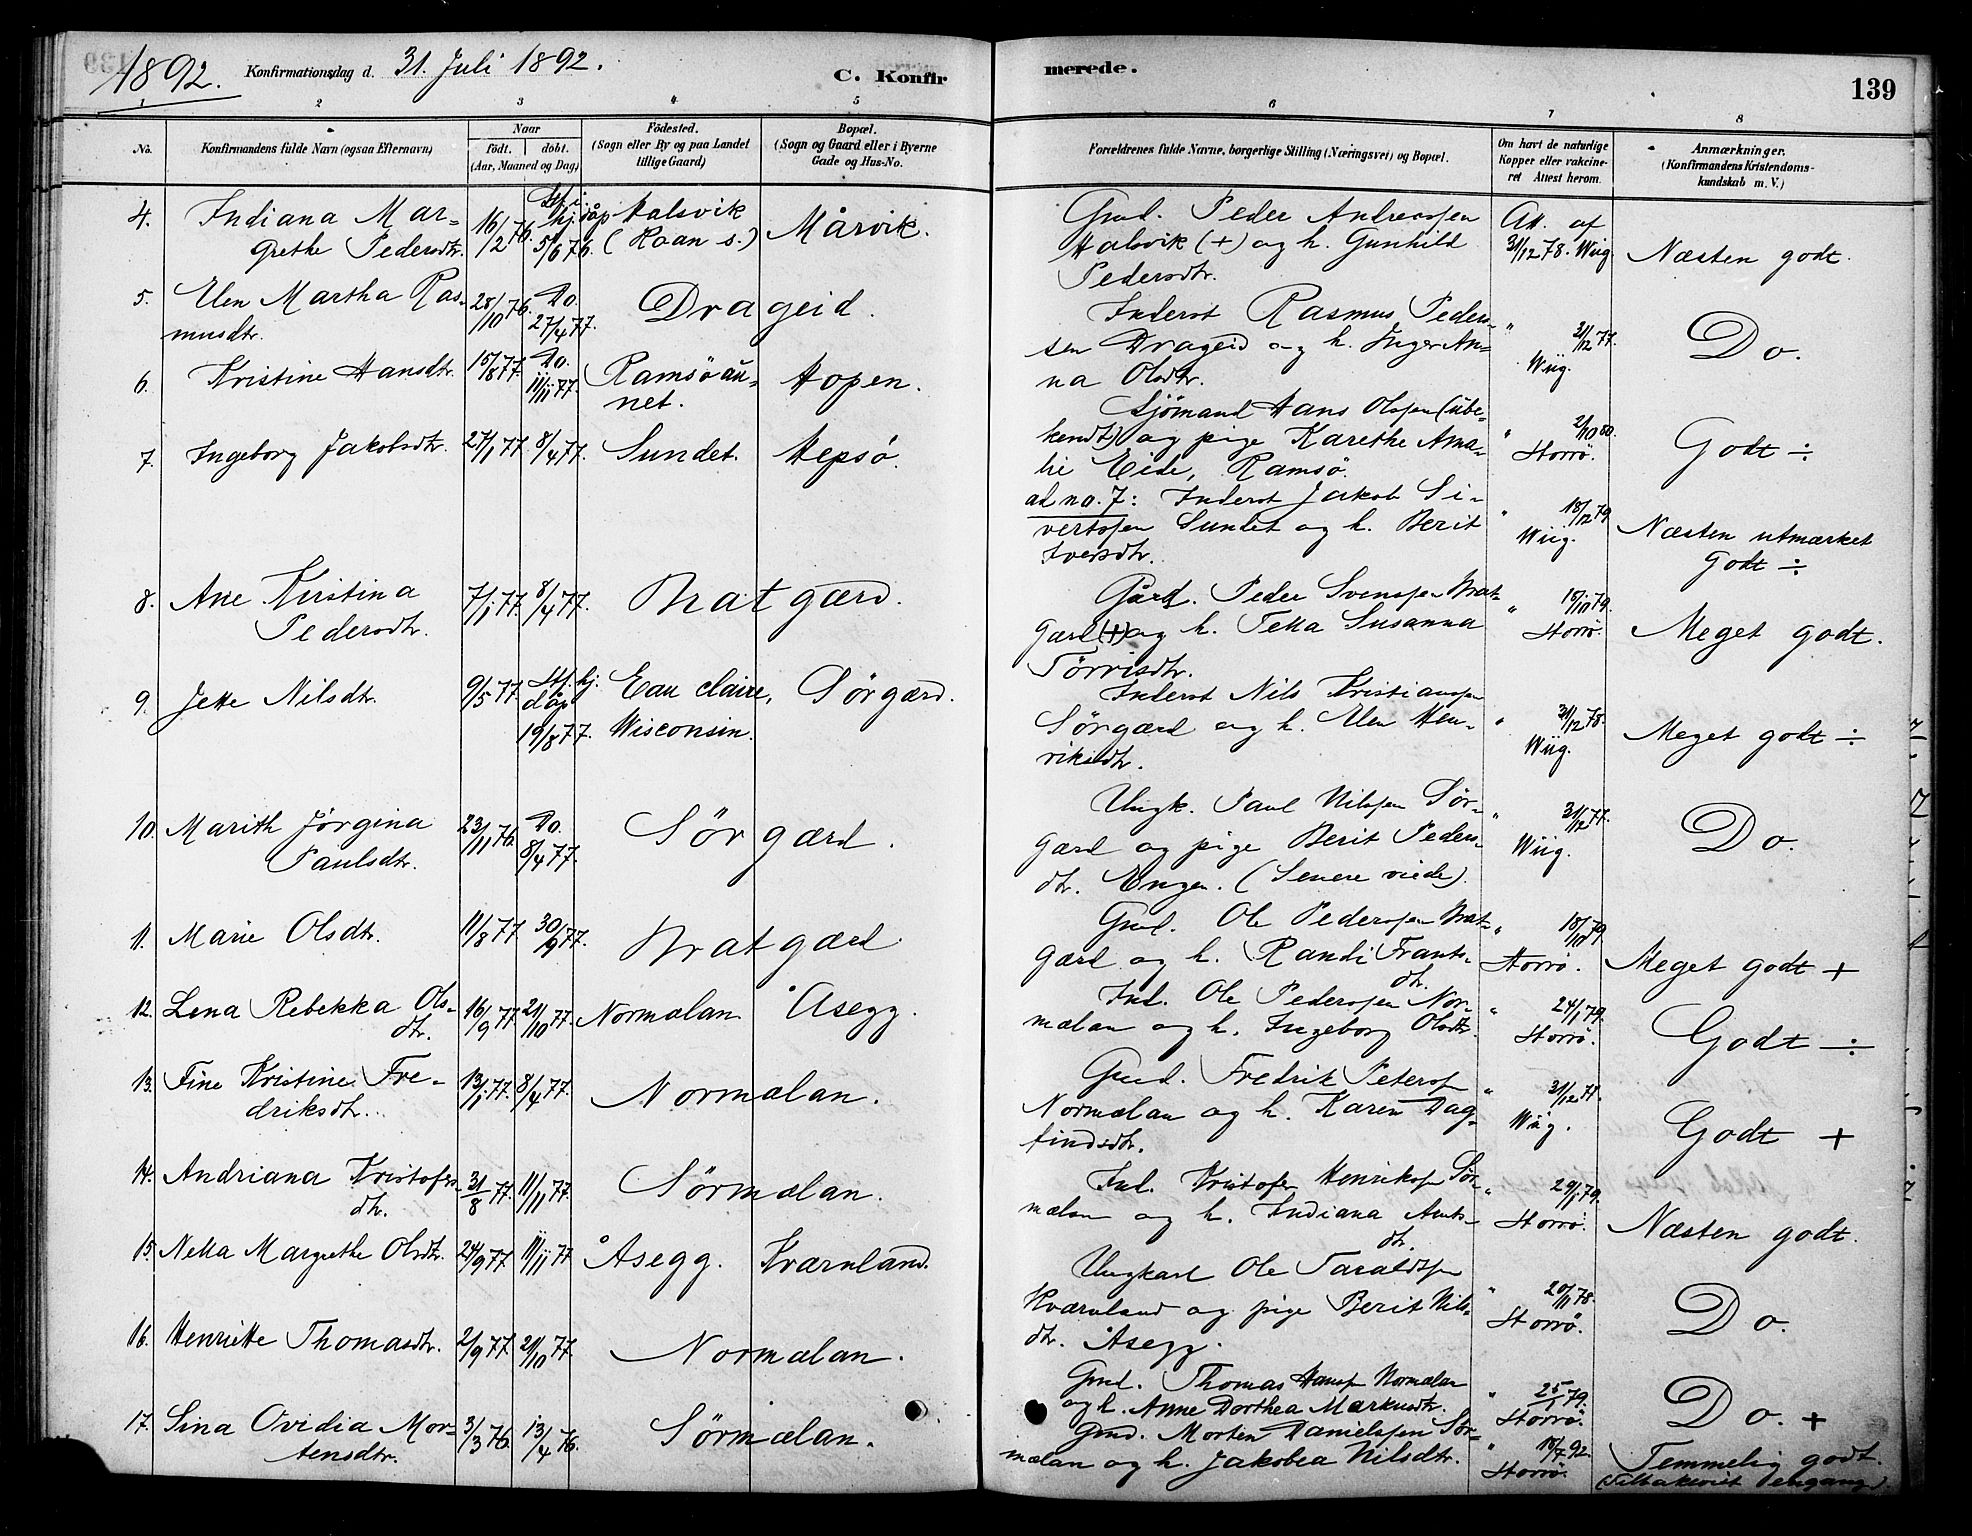 1892.
Konfirmationsdag d. 31. Juli 1892.
C. Konfirmerede.
139
1 2 3 4 5 6 7 8
No.
Konfirmandens fulde Navn (ogsaa Efternavn)
Naar
födt. döbt.
(Aar, Maaned og Dag)
Födested.
(Sogn eller By og paa Landet
tillige Gaard)
Bopæl.
(Sogn og Gaard eller i Byerne
Gade og Hus-No.
Forældrenes fulde Navne, borgerlige Stilling (Næringsvei) og Bopæl.
Om havt de naturlige
Kopper eller vakcine-
ret Attest herom.
Anmærkninger.
(Konfirmandens Kristendoms-
kundskab m. V.)
4. Indiana Mar-
grethe Pedersdtr.
16/2 76.
Stf. i.
hj. dåp
5/6 76.
Halsvik
(Roan s.)
Mårvik.
Gmd. Peder Andreassen
Halsvik (+) og h. Gunhild
Pedersdtr.
Att. af
31/12 78. Wiig
Næsten godt.
5. Elen Martha Ras-
musdtr.
28/10 76.
Do.
27/4 77.
Drageid.
Inderst Rasmus Peder-
sen Drageid og h. Inger An-
na Olsdtr.
" 31/12 77.
Wiig.
Do.
6. Kristine Hansdtr.
15/8 77.
Do.
11/11 77.
Ramsöau-
net.
Hopen.
Sjömand Hans Olsen (ube-
kendt) og pige Karethe Ama-
lie Eide, Ramsö.
" 2/10 80.
Storrö.
Godt ÷
7. Ingeborg Jakobsdtr.
27/1 77.
8/4 77.
Sundet.
Hepsö.
ad no. 7: Inderst Jakob Si-
vertsen Sundet og h. Berit
Iversdtr.
" 18/12 79
Wiig.
Næsten utmærket
godt ÷
8. Ane Kirstina
Pedersdtr.
7/1 77.
8/4 77.
Bratgærd.
Gård. Peder Svensen Brat-
gærd (+) og h. Tella Susanna
Törrisdtr.
" 15/10 79.
Storrö.
Meget godt.
9. Jette Nilsdtr.
9/5 77.
Stf. hj.
dåp
19/8 77.
Eau claire,
Wisconsin.
Sörgærd.
Inderst Nils Kristiansen
Sörgærd og h. Elen Hen-
riksdtr.
" 31/12 78.
Wiig.
Meget godt ÷
10. Marith Jörgina
Paulsdtr.
23/11 76.
Do.
8/4 77.
Sörgærd.
Ungk. Paul Nilssen Sör-
gærd og pige Berit Peders-
dtr. Engen. (Senere viede).
" 31/12 77.
Wiig.
Do.
11. Marie Olsdtr.
11/8 77
30/9 77.
Bratgærd.
Gmd. Ole Pedersen Brat-
gærd og h. Randi Frants-
dtr.
" 18/10 79
Storrö.
Meget godt +
12. Lena Rebekka Ols-
dtr.
16/9 77.
21/10 77.
Normælan.
Åsegg.
Ind. Ole Pedersen Nor-
mælan og h. Ingeborg Olsdtr.
" 24/1 79.
Storrö.
Godt ÷
13. Fine Kristine Fre-
driksdtr.
13/1 77.
8/4 77.
Normælan.
Gmd. Fredrik Petersen
Normælan og h. Karen Dag-
findsdtr.
" 31/12 77.
Wiig.
Godt +
14. Andriana Kristofers-
dtr.
31/8 77.
11/11 77.
Sörmælan.
Ind. Kristofer Henriksen Sör-
mælan og h. Indiana Ants-
dtr.
" 29/1 79.
Storrö.
Næsten godt.
15. Nella Margrethe Olsdtr.
24/9 77
11/11 77
Åsegg.
Kværnland.
Ungkarl Ole Taraldsen
Kværnland og pige Berit Nils-
dtr. Åsegg.
" 20/11 78.
Storrö.
Do.
16. Henriette Thomasdtr.
2/9 77
21/10 77.
Normælan.
Gmd. Thomas Hansen Normælan
og h. Anne Dorthea Markusdtr.
" 25/1 79.
Storrö.
Do. +
17. Lina Ovidia Mor-
tensdtr.
3/3 76.
13/4 76.
Sörmælan.
Gmd. Morten Danielssen Sör-
mælan og h. Jakobea Nilsdtr.
" 18/7 92.
Storrö.
Temmelig godt.
(Tilbakevist engang).